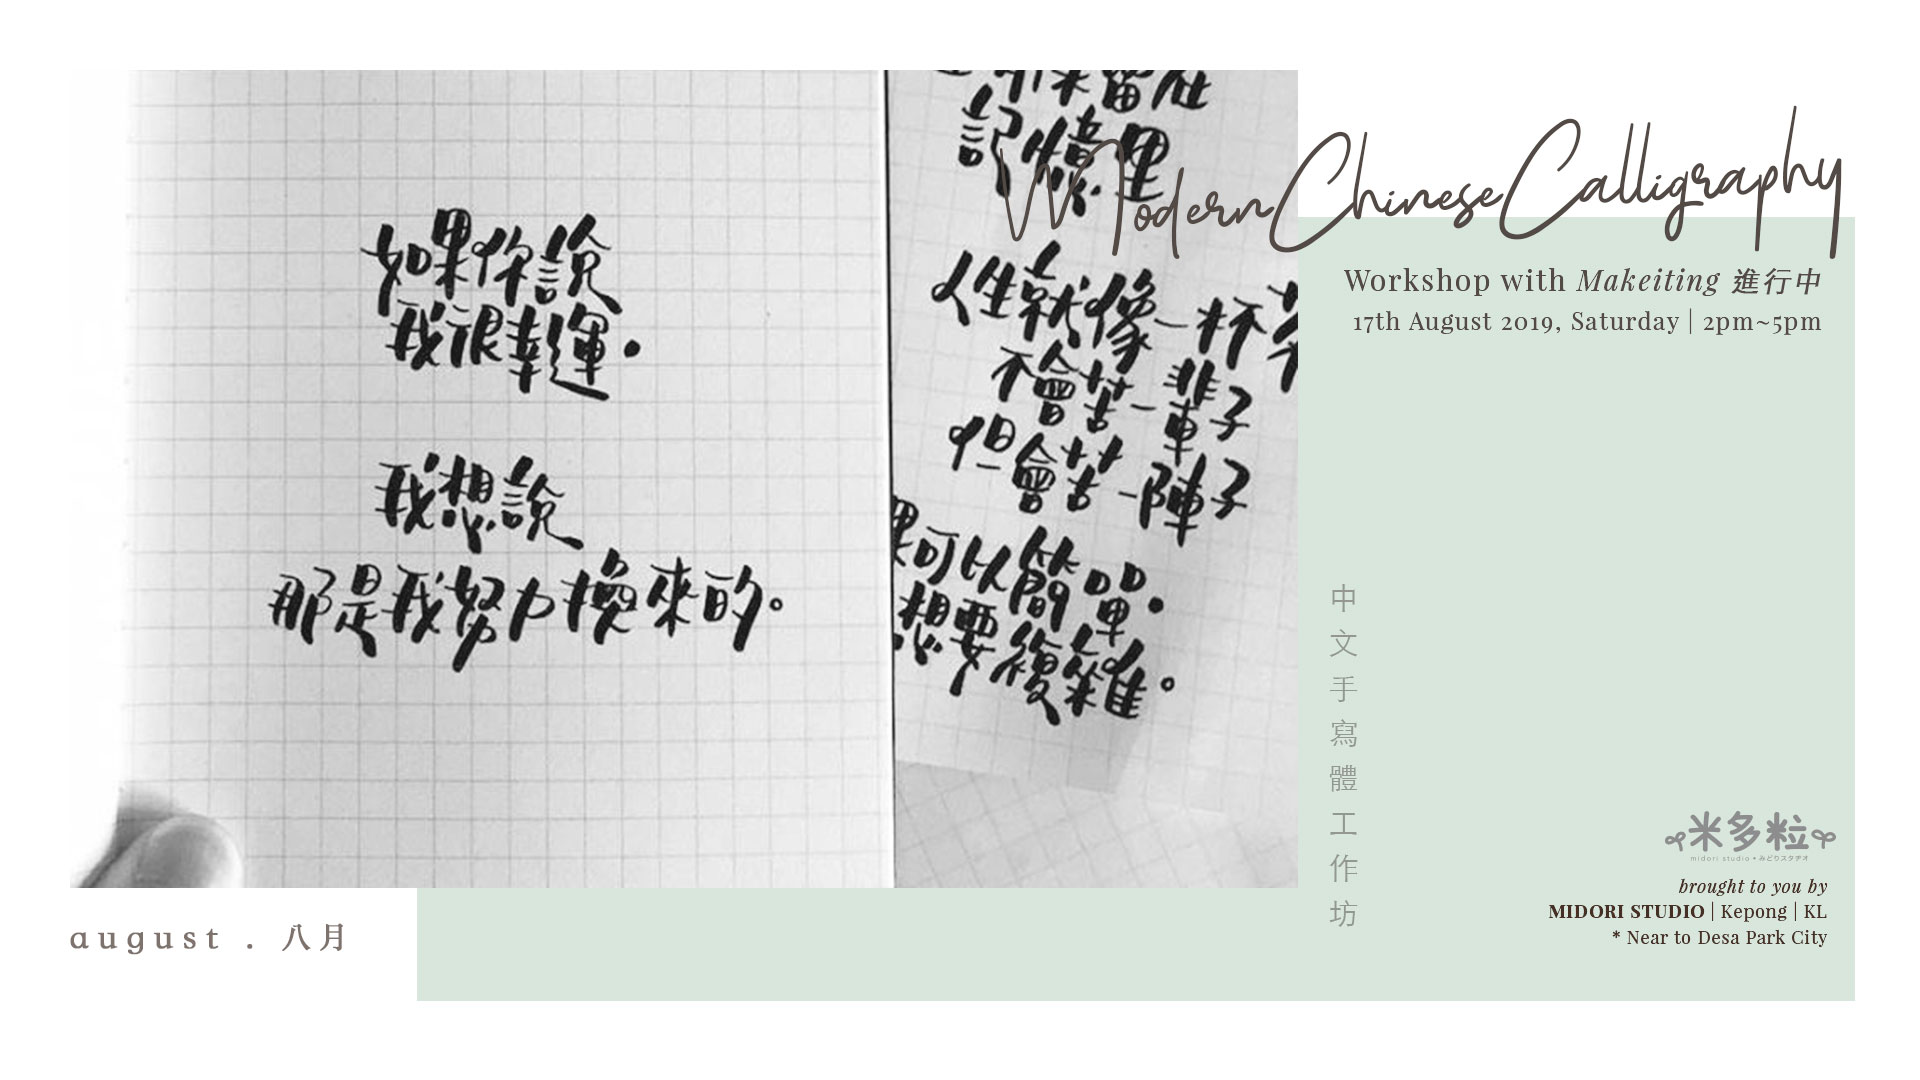 如果你說
我很幸運.
我想說
那是我努力換來的。
記憶裡
人生就像一杯茶
不會苦一輩子
但會苦一陣子
可以簡單.
想要複雜。
Modern Chinese Calligraphy
Workshop with Makeiting 進行中
17th August 2019, Saturday | 2pm~5pm
中文手寫體工作坊
米多粒
midori studio • みどりスタヂオ
brought to you by
MIDORI STUDIO | Kepong | KL
* Near to Desa Park City
august . 八月